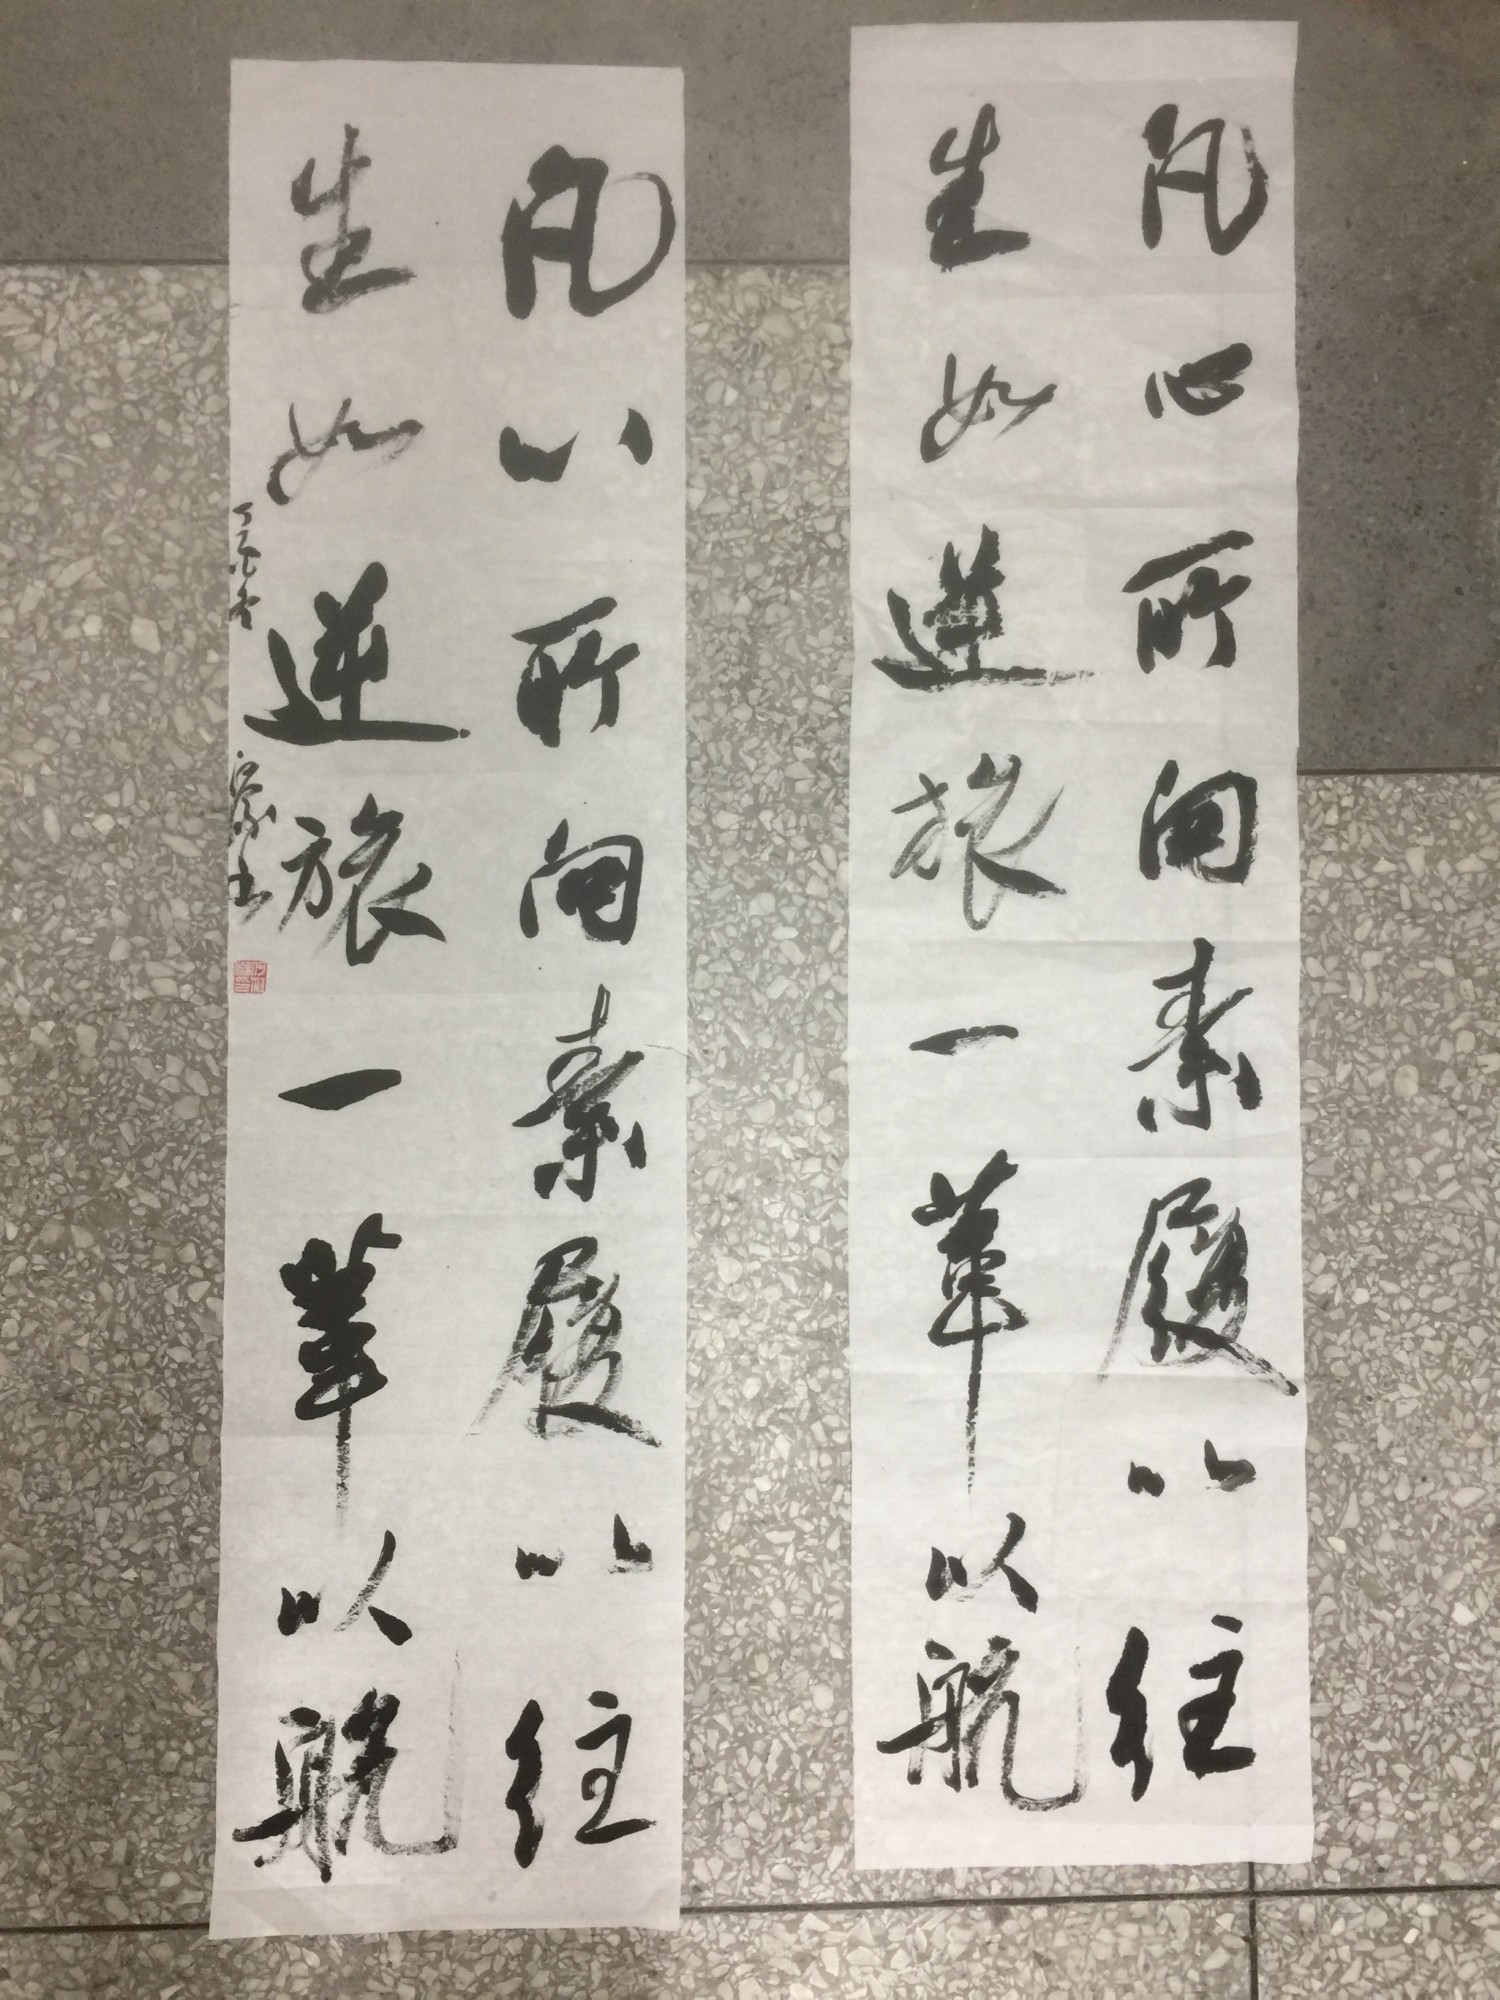 凡心所向素履以往
生如逆旅一苇以航
凡心所向素履以往
生如逆旅一苇以航